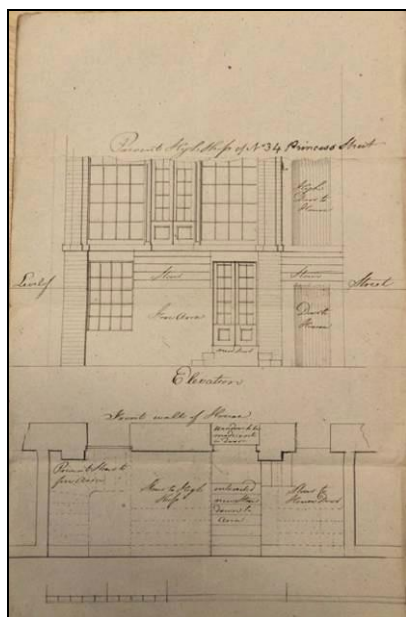 Present High Shop of No 34 Princess Street
High
Door to
House
Level of
Stair
Stairs
Street
fore Area
Door to
House
new door
Elevation
Front wall of House
Window to be
made into
a door
Present Stair to
fore Area
Stair to High
Shop
intended
new Stair
down to
Area
Stair to
House Door